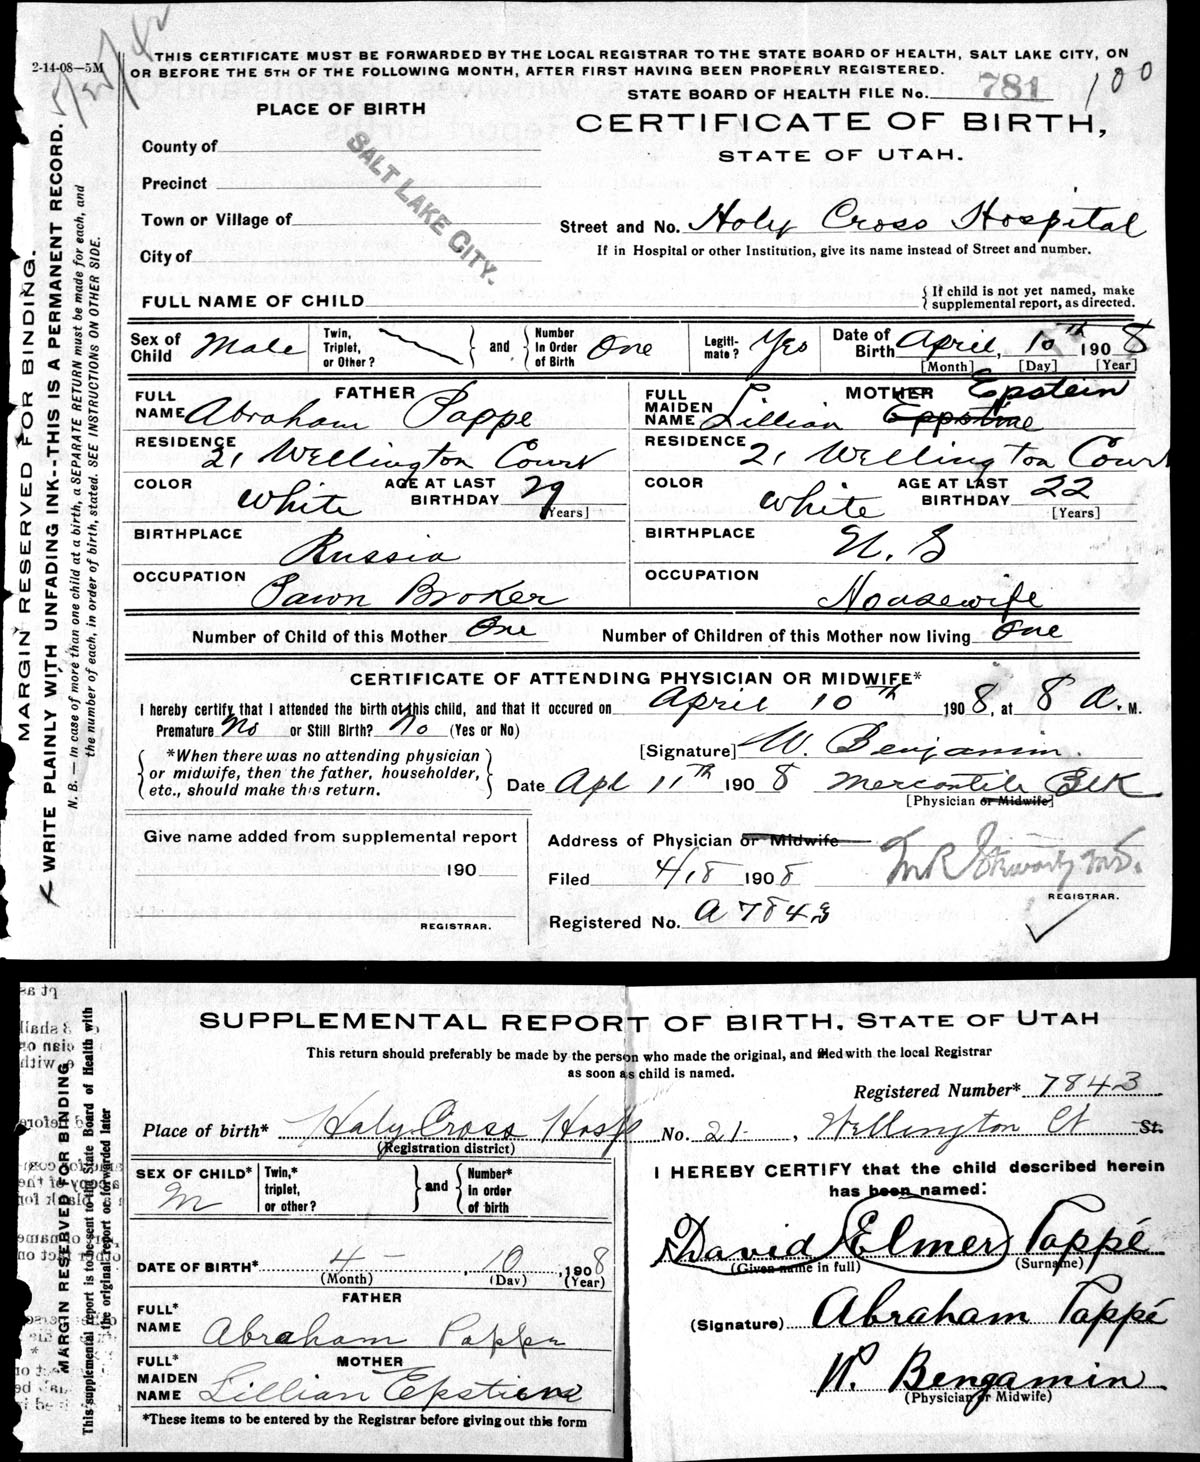 2-14-08—5M
5/27/42
THIS CERTIFICATE MUST BE FORWARDED BY THE LOCAL REGISTRAR TO THE STATE BOARD OF HEALTH, SALT LAKE CITY, ON
OR BEFORE THE 5TH OF THE FOLLOWING MONTH, AFTER FIRST HAVING BEEN PROPERLY REGISTERED.
STATE BOARD OF HEALTH FILE No. 781 100
PLACE OF BIRTH
CERTIFICATE OF BIRTH,
STATE OF UTAH.
County of
Precinct
Town or Village of
City of
SALT LAKE CITY.
Street and No. Holy Cross Hospital
If in Hospital or other Institution, give its name instead of Street and number.
FULL NAME OF CHILD
If child is not yet named, make
supplemental report, as directed.
Sex of Child Male Twin, Triplet, or Other? and Number In Order of Birth One Legiti- mate? Yes Date of Birth April, 10th 1908
[Month] [Day] [Year]
FATHER MOTHER Epstein
FULL NAME Abraham Pappe FULL MAIDEN NAME Lillian Eppstine
RESIDENCE 21 Wellington Court RESIDENCE 21 Wellington Court
COLOR White AGE AT LAST BIRTHDAY 29 [Years] COLOR White AGE AT LAST BIRTHDAY 22 [Years]
BIRTHPLACE Russia BIRTHPLACE U. S
OCCUPATION Pawn Broker OCCUPATION Housewife
Number of Child of this Mother One Number of Children of this Mother now living One
CERTIFICATE OF ATTENDING PHYSICIAN OR MIDWIFE*
I hereby certify that I attended the birth of this child, and that it occured on April 10th 1908, at 8 A. M.
Premature No or Still Birth? No (Yes or No)
[Signature] W. Benjamin.
*When there was no attending physician
or midwife, then the father, householder,
etc., should make this return.
Date Apl 11th 1908 Mercantile Blk
[Physician or Midwife]
Give name added from supplemental report
190
REGISTRAR.
Address of Physician or Midwife
Filed 4/18 1908
REGISTRAR.
Registered No. A 7843
MARGIN RESERVED FOR BINDING.
WRITE PLAINLY WITH UNFADING INK--THIS IS A PERMANENT RECORD.
N. B.—In case of more than one child at a birth, a SEPARATE RETURN must be made for each, and
the number of each, in order of birth, stated. SEE INSTRUCTIONS ON OTHER SIDE.
SUPPLEMENTAL REPORT OF BIRTH, STATE OF UTAH
This return should preferably be made by the person who made the original, and filed with the local Registrar
as soon as child is named.
Registered Number* 7843
Place of birth* Holy Cross Hosp No. 21 , Wellington Ct St.
(Registration district)
SEX OF CHILD* M Twin,* triplet, or other? and Number* in order of birth
I HEREBY CERTIFY that the child described herein
has been named:
David Elmer Pappé
(Given name in full) (Surname)
DATE OF BIRTH* 4 - , 10 , 1908
(Month) (Day) (Year)
FATHER
FULL* NAME Abraham Pappe
(Signature) Abraham Pappé
MOTHER
FULL* MAIDEN NAME Lillian Epstiene
W. Bengamin
(Physician or Midwife)
*These items to be entered by the Registrar before giving out this form
MARGIN RESERVED FOR BINDING
This supplemental report is to be sent to the State Board of Health with
the original report or forwarded later